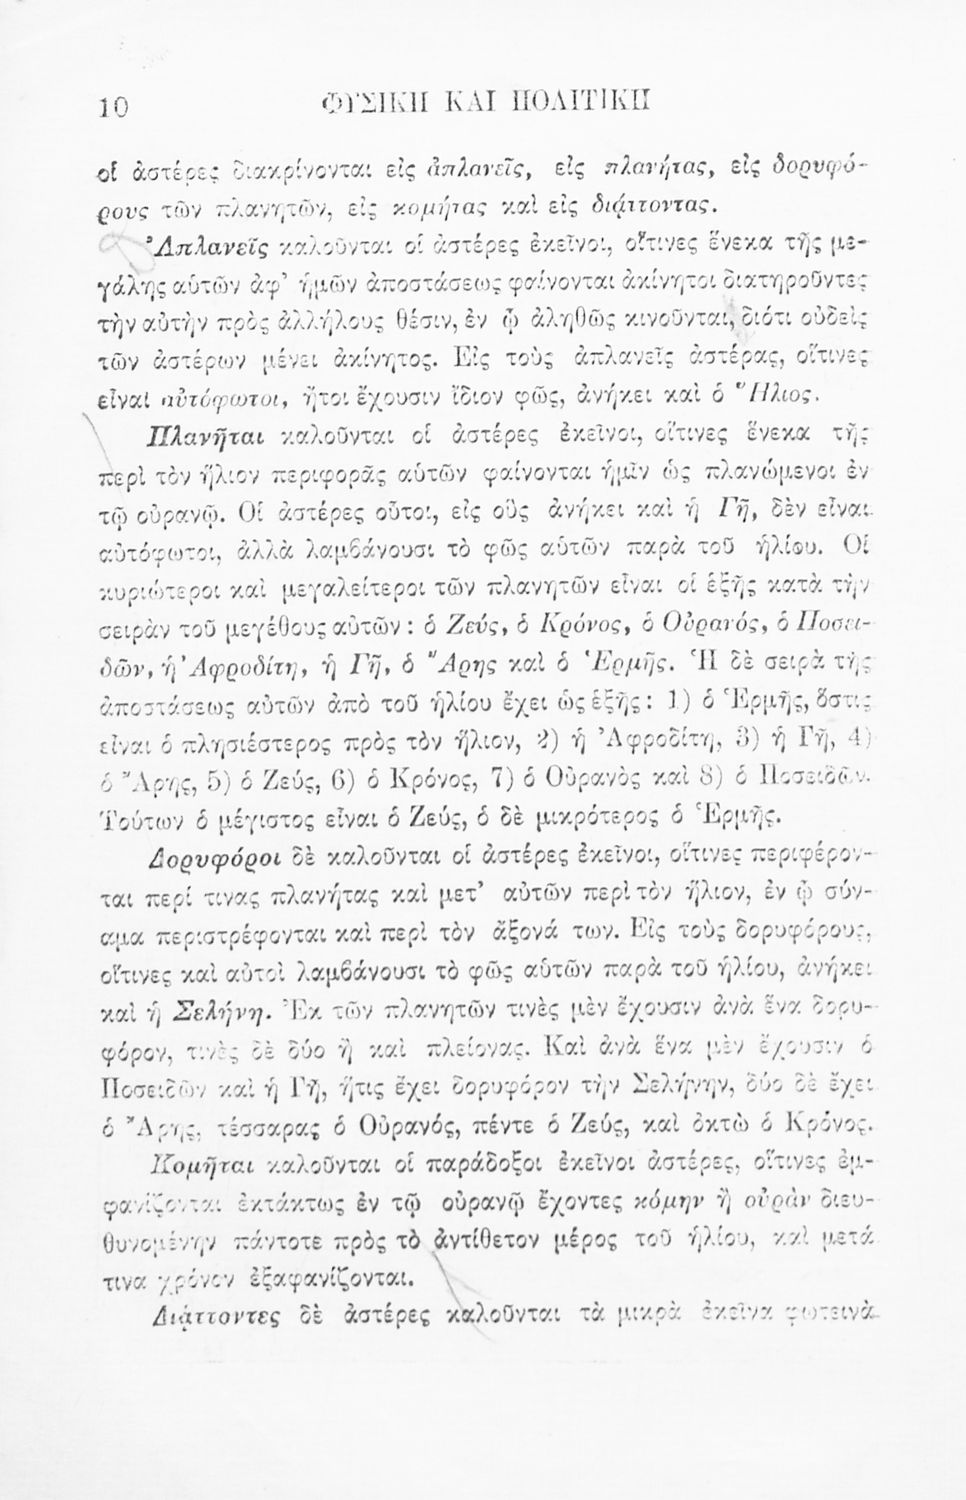 10 ΦΥΣΙΚΗ ΚΑΙ ΠΟΛΙΤΙΚΗ
οἱ ἀστέρες διακρίνονται εἰς ἀπλανεῖς, εἰς πλανήτας, εἰς δορυφό-
ρους τῶν πλανητῶν, εἰς κομήτας καὶ εἰς διᾴττοντας.
Ἀπλανεῖς καλοῦνται οἱ ἀστέρες ἐκεῖνοι, οἵτινες ἕνεκα τῆς με-
γάλης αὑτῶν ἀφ' ἡμῶν ἀποστάσεως φαίνονται ἀκίνητοι διατηροῦντες
τὴν αὐτὴν πρὸς ἀλλήλους θέσιν, ἐν ᾧ ἀληθῶς κινοῦνται, διότι οὐδεὶς
τῶν ἀστέρων μένει ἀκίνητος. Εἰς τοὺς ἀπλανεῖς ἀστέρας, οἵτινες
εἶναι αὐτόφωτοι, ἤτοι ἔχουσιν ἴδιον φῶς, ἀνήκει καὶ ὁ Ἥλιος.
Πλανῆται καλοῦνται οἱ ἀστέρες ἐκεῖνοι, οἵτινες ἕνεκα τῆς
περὶ τὸν ἥλιον περιφορᾶς αὑτῶν φαίνονται ἡμῖν ὡς πλανώμενοι ἐν
τῷ οὐρανῷ. Οἱ ἀστέρες οὗτοι, εἰς οὓς ἀνήκει καὶ ἡ Γῆ, δὲν εἶναι
αὐτόφωτοι, ἀλλὰ λαμβάνουσι τὸ φῶς αὑτῶν παρὰ τοῦ ἡλίου. Οἱ
κυριώτεροι καὶ μεγαλείτεροι τῶν πλανητῶν εἶναι οἱ ἑξῆς κατὰ τὴν
σειρὰν τοῦ μεγέθους αὐτῶν : ὁ Ζεύς, ὁ Κρόνος, ὁ Οὐρανός, ὁ Ποσει-
δῶν, ἡ Ἀφροδίτη, ἡ Γῆ, ὁ Ἄρης καὶ ὁ Ἑρμῆς. Ἡ δὲ σειρὰ τῆς
ἀποστάσεως αὐτῶν ἀπὸ τοῦ ἡλίου ἔχει ὡς ἑξῆς : 1) ὁ Ἑρμῆς, ὅστις
εἶναι ὁ πλησιέστερος πρὸς τὸν ἥλιον, 2) ἡ Ἀφροδίτη, 3) ἡ Γῆ, 4)
ὁ Ἄρης, 5) ὁ Ζεύς, 6) ὁ Κρόνος, 7) ὁ Οὐρανὸς καὶ 8) ὁ Ποσειδῶν.
Τούτων ὁ μέγιστος εἶναι ὁ Ζεύς, ὁ δὲ μικρότερος ὁ Ἑρμῆς.
Δορυφόροι δὲ καλοῦνται οἱ ἀστέρες ἐκεῖνοι, οἵτινες περιφέρον-
ται περί τινας πλανήτας καὶ μετ' αὐτῶν περὶ τὸν ἥλιον, ἐν ᾧ σύν-
αμα περιστρέφονται καὶ περὶ τὸν ἄξονά των. Εἰς τοὺς δορυφόρους,
οἵτινες καὶ αὐτοὶ λαμβάνουσι τὸ φῶς αὑτῶν παρὰ τοῦ ἡλίου, ἀνήκει
καὶ ἡ Σελήνη. Ἐκ τῶν πλανητῶν τινὲς μὲν ἔχουσιν ἀνὰ ἕνα δορυ-
φόρον, τινὲς δὲ δύο ἢ καὶ πλείονας. Καὶ ἀνὰ ἕνα μὲν ἔχουσιν ὁ
Ποσειδῶν καὶ ἡ Γῆ, ἥτις ἔχει δορυφόρον τὴν Σελήνην, δύο δὲ ἔχει
ὁ Ἄρης, τέσσαρας ὁ Οὐρανός, πέντε ὁ Ζεύς, καὶ ὀκτὼ ὁ Κρόνος.
Κομῆται καλοῦνται οἱ παράδοξοι ἐκεῖνοι ἀστέρες, οἵτινες ἐμ-
φανίζονται ἐκτάκτως ἐν τῷ οὐρανῷ ἔχοντες κόμην ἢ οὐρὰν διευ-
θυνομένην πάντοτε πρὸς τὸ ἀντίθετον μέρος τοῦ ἡλίου, καὶ μετά
τινα χρόνον ἐξαφανίζονται.
Διᾴττοντες δὲ ἀστέρες καλοῦνται τὰ μικρὰ ἐκεῖνα φωτεινὰ